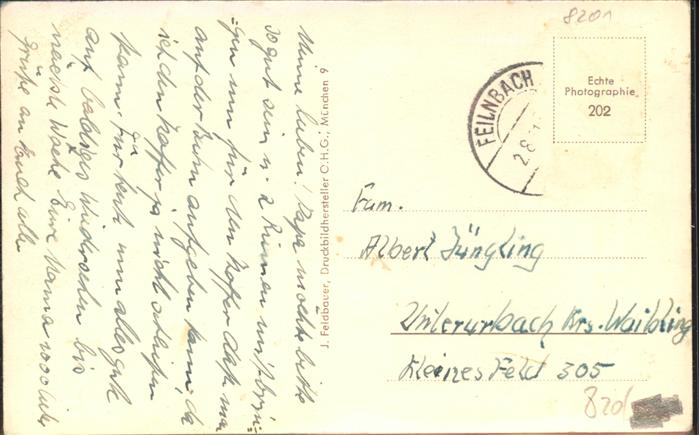 Meine Lieben! Papa möchte bitte
so gut sein u. 2 Riemen mitbrin=
=gen nur für den Koffer daß man
auf der Bahn aufgeben kann, da
ich den Koffer ja nicht schleifen
kann, für heute nun alles gute
auf baldiges Wiedersehen bis
nächste Woche Eure Mama
Grüße an Euch alle
J. Feldbauer, Druckbildhersteller O.H.G., München 9
8201
FEILNBACH
2.8.
Echte
Photographie
202
Fam.
Albert Jüngling
Unterurbach Krs. Waibling
Kleines Feld 305